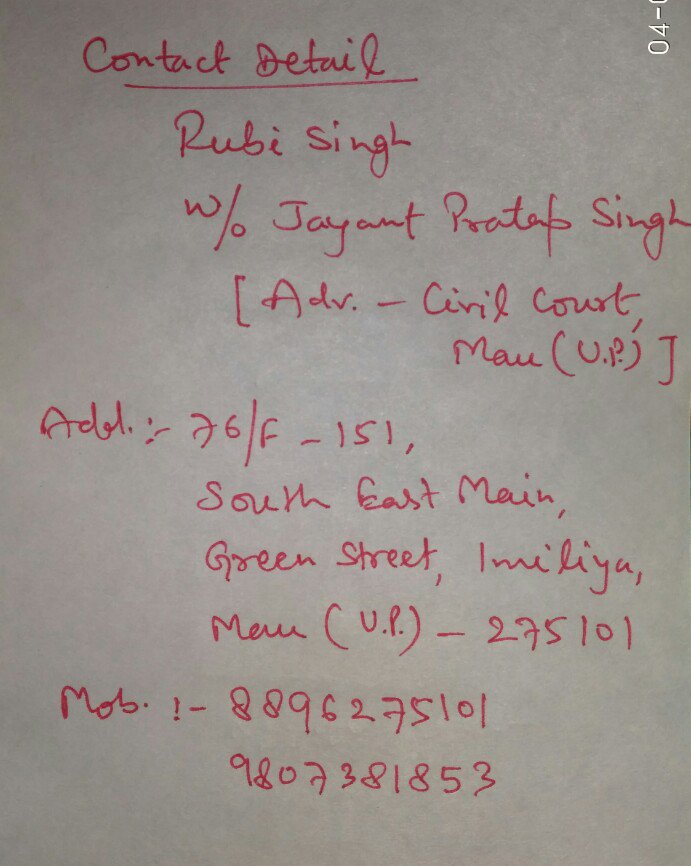 Contact Detail
Rubi Singh
W/o Jayant Pratap Singh
[Adv. - Civil Court,
Mau (U.P.)]
Add. :- 76/F - 151,
South East Main,
Green Street, Imiliya,
Mau (U.P.) - 275101
Mob. :- 8896275101
9807381853
04-